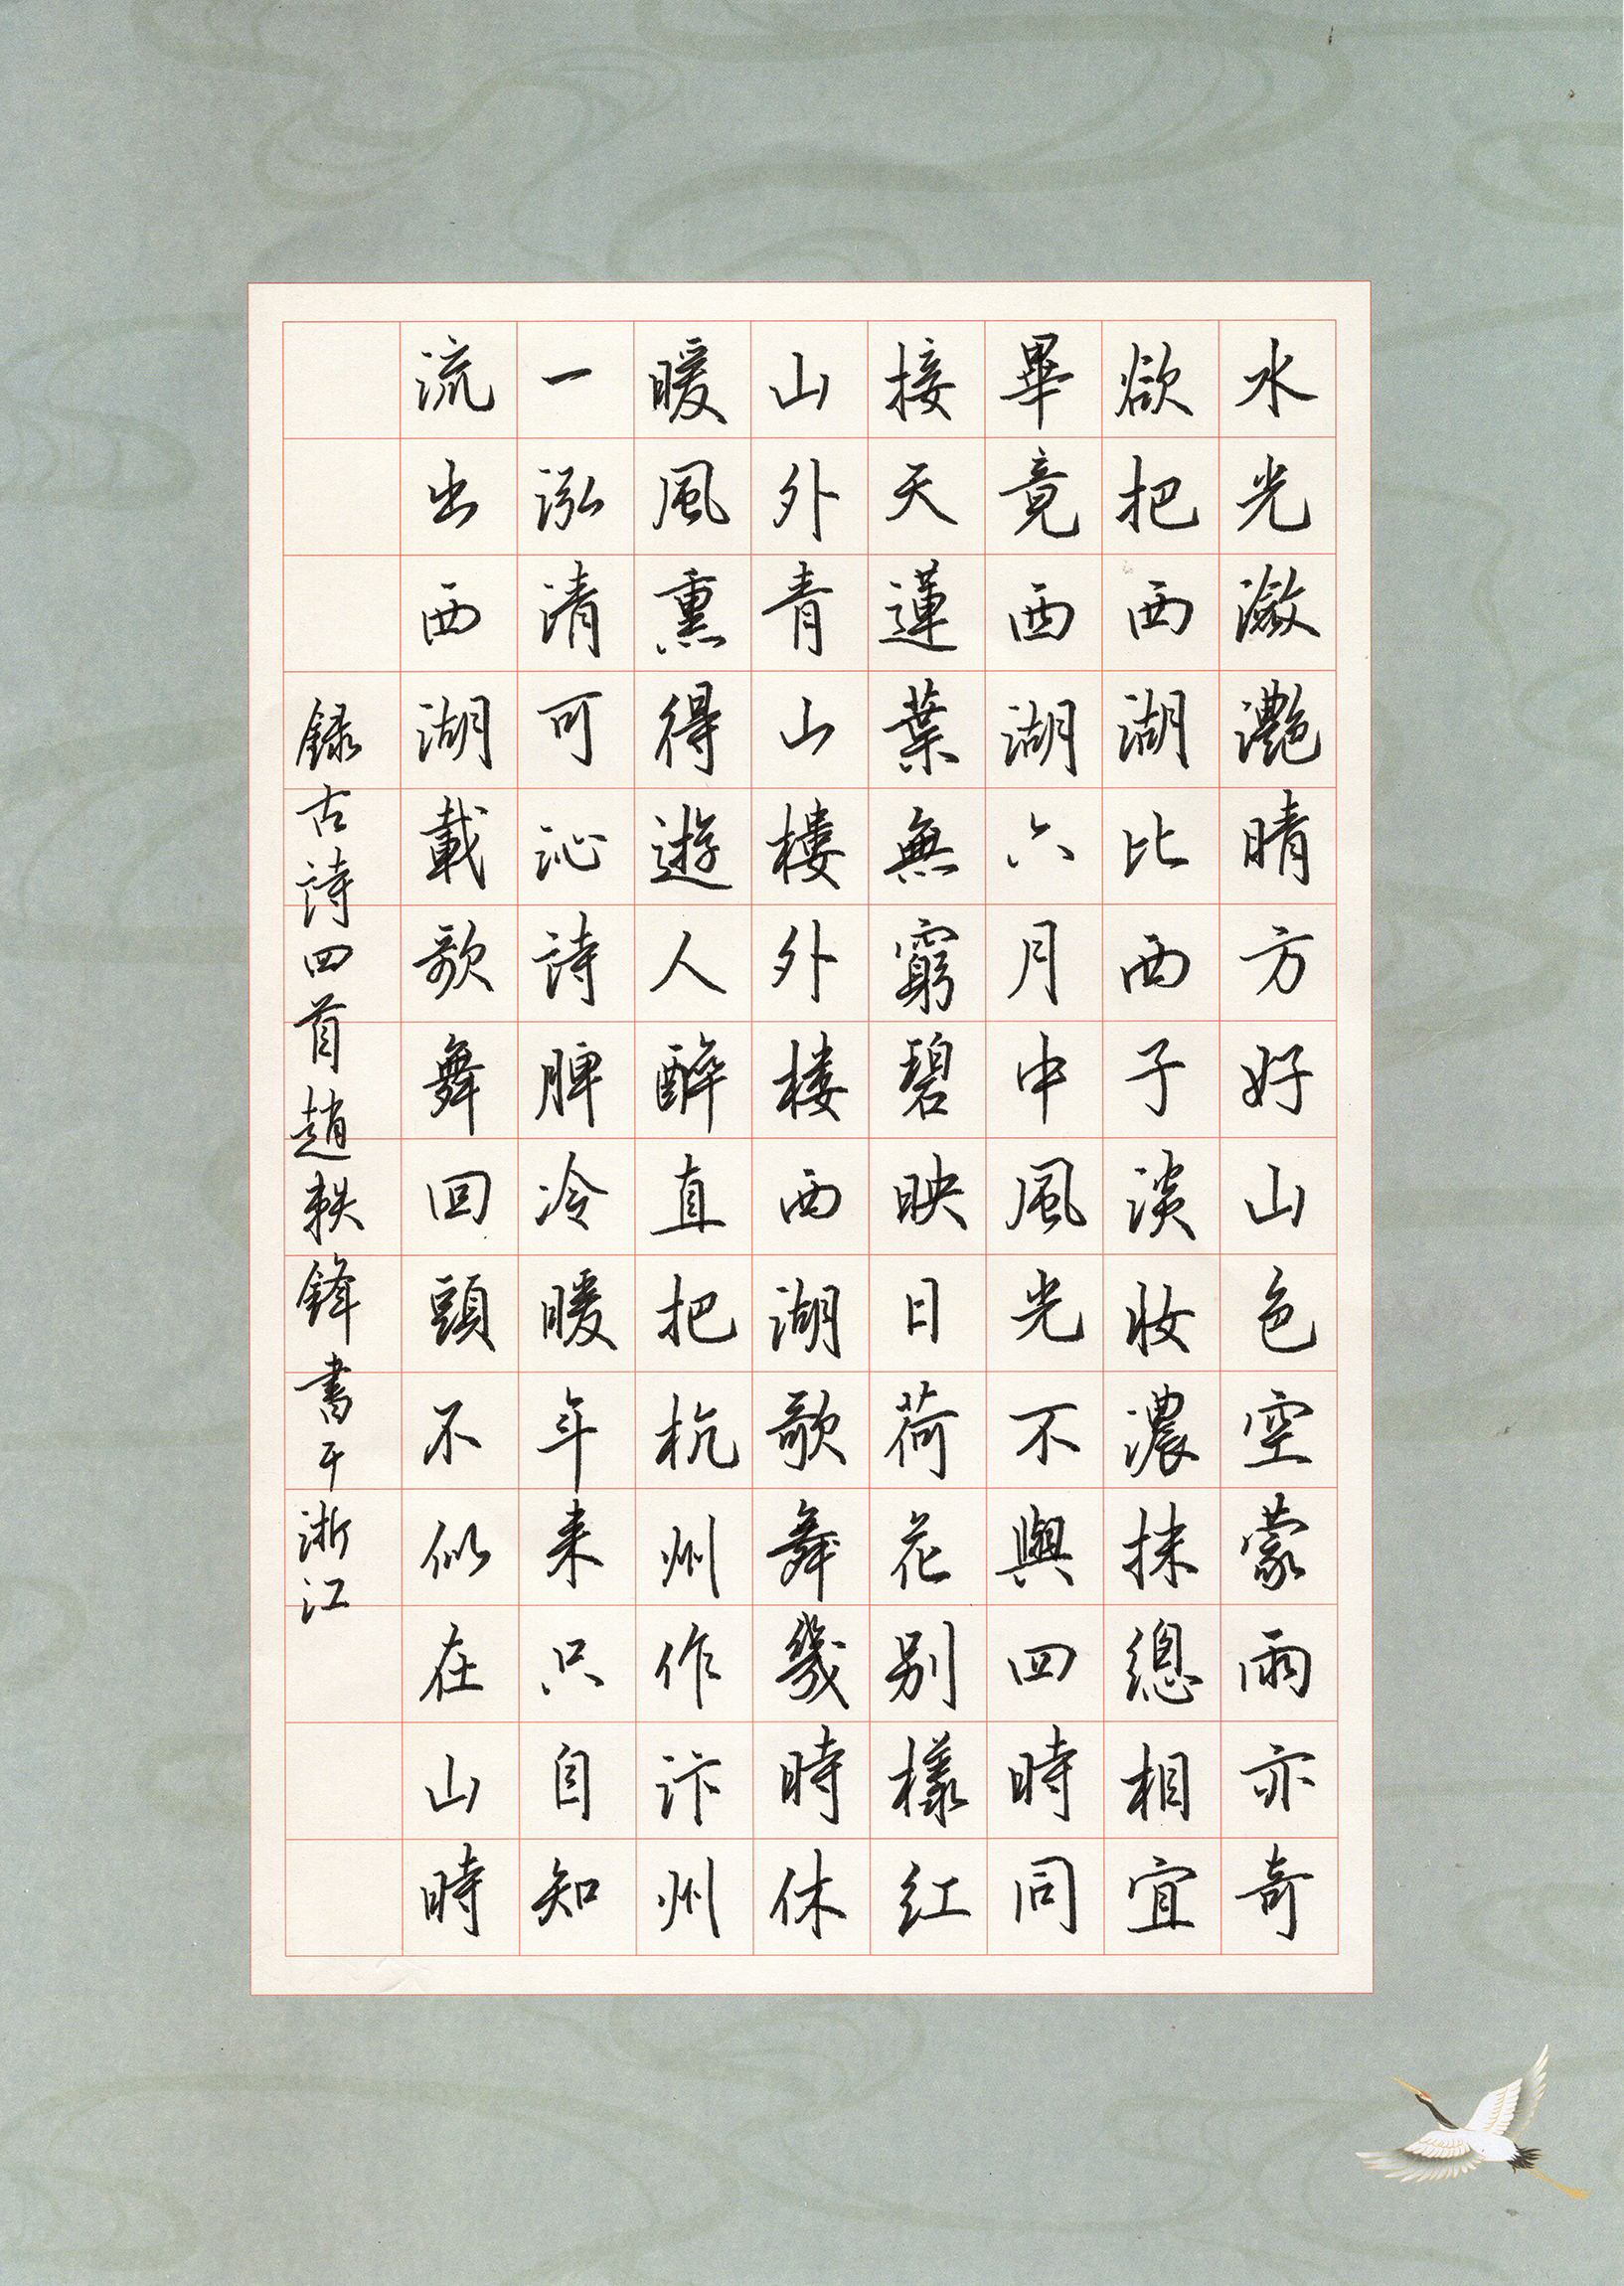 水光瀲灩晴方好山色空蒙雨亦奇
欲把西湖比西子淡妝濃抹總相宜
畢竟西湖六月中風光不與四時同
接天蓮葉無窮碧映日荷花别樣紅
山外青山樓外樓西湖歌舞幾時休
暖風熏得遊人醉直把杭州作汴州
一泓清可沁詩脾冷暖年来只自知
流出西湖載歌舞回頭不似在山時
録古詩四首趙軼鋒書于浙江